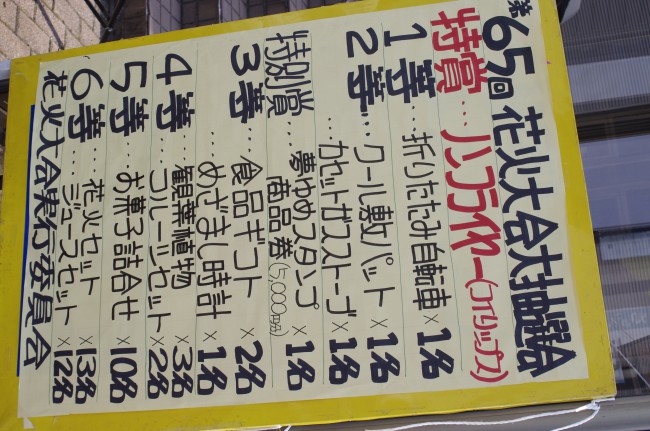 第65回 花火大会大抽選会
特賞…ノンフライヤー(コイズミ)
1等…折りたたみ自転車×1名
2等…クール敷パット×1名
カセットガスストーブ×1名
特別賞…夢ゆめスタンプ商品券(5,000円分)×1名
3等…食品ギフト×2名
めざまし時計×1名
4等…観葉植物×3名
コルージセット×2名
5等…お菓子詰合せ×10名
6等…花火セット×13名
ジュースセット×12名
花火大会実行委員会